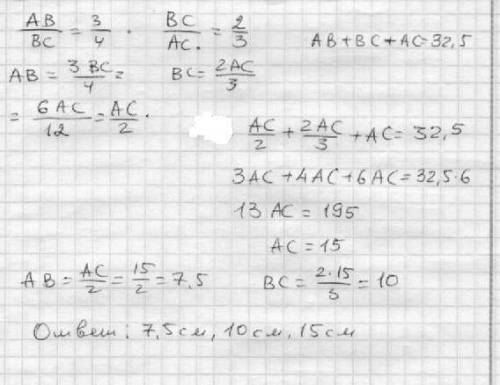 AB/BC = 3/4 . BC/AC. = 2/3 AB+BC+AC=32,5
AB = 3BC/4 = BC = 2AC/3
= 6AC/12 = AC/2 .
AC/2 + 2AC/3 + AC = 32,5
3AC+4AC+6AC=32,5·6
13 AC = 195
AC = 15
AB = AC/2 = 15/2 = 7.5 BC = 2·15/3 = 10
Ответ: 7,5см, 10см, 15см